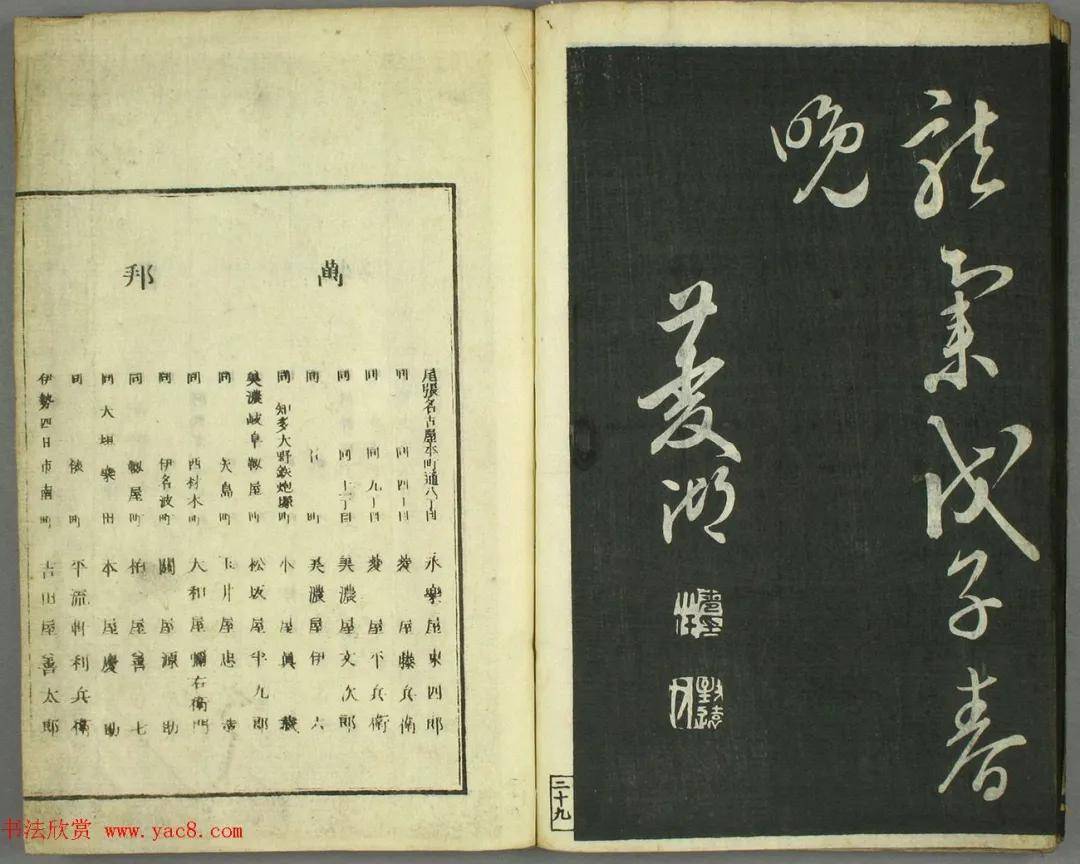 龍集戊子春
晩
菱湖
致遠
二十九
萬邦
尾張名古屋本町通八丁目 永樂屋東四郎
同 同四丁目 菱屋藤兵衛
同 同九丁目 菱屋平兵衛
同 同十一丁目 美濃屋文次郎
同 町 美濃屋伊六
同 知多大野鉄炮塚町 小屋眞藏
美濃岐阜靱屋町 松坂屋半九郎
同 矢島町 玉井屋忠造
同 西材木町 大和屋彌右衛門
同 伊名波町 關屋源助
同 靱屋町 柏屋善七
同 大垣 本屋慶助
同 俵町 平流軒利兵衛
伊勢四日市南町 吉田屋善太郎
书法欣赏 www.yac8.com